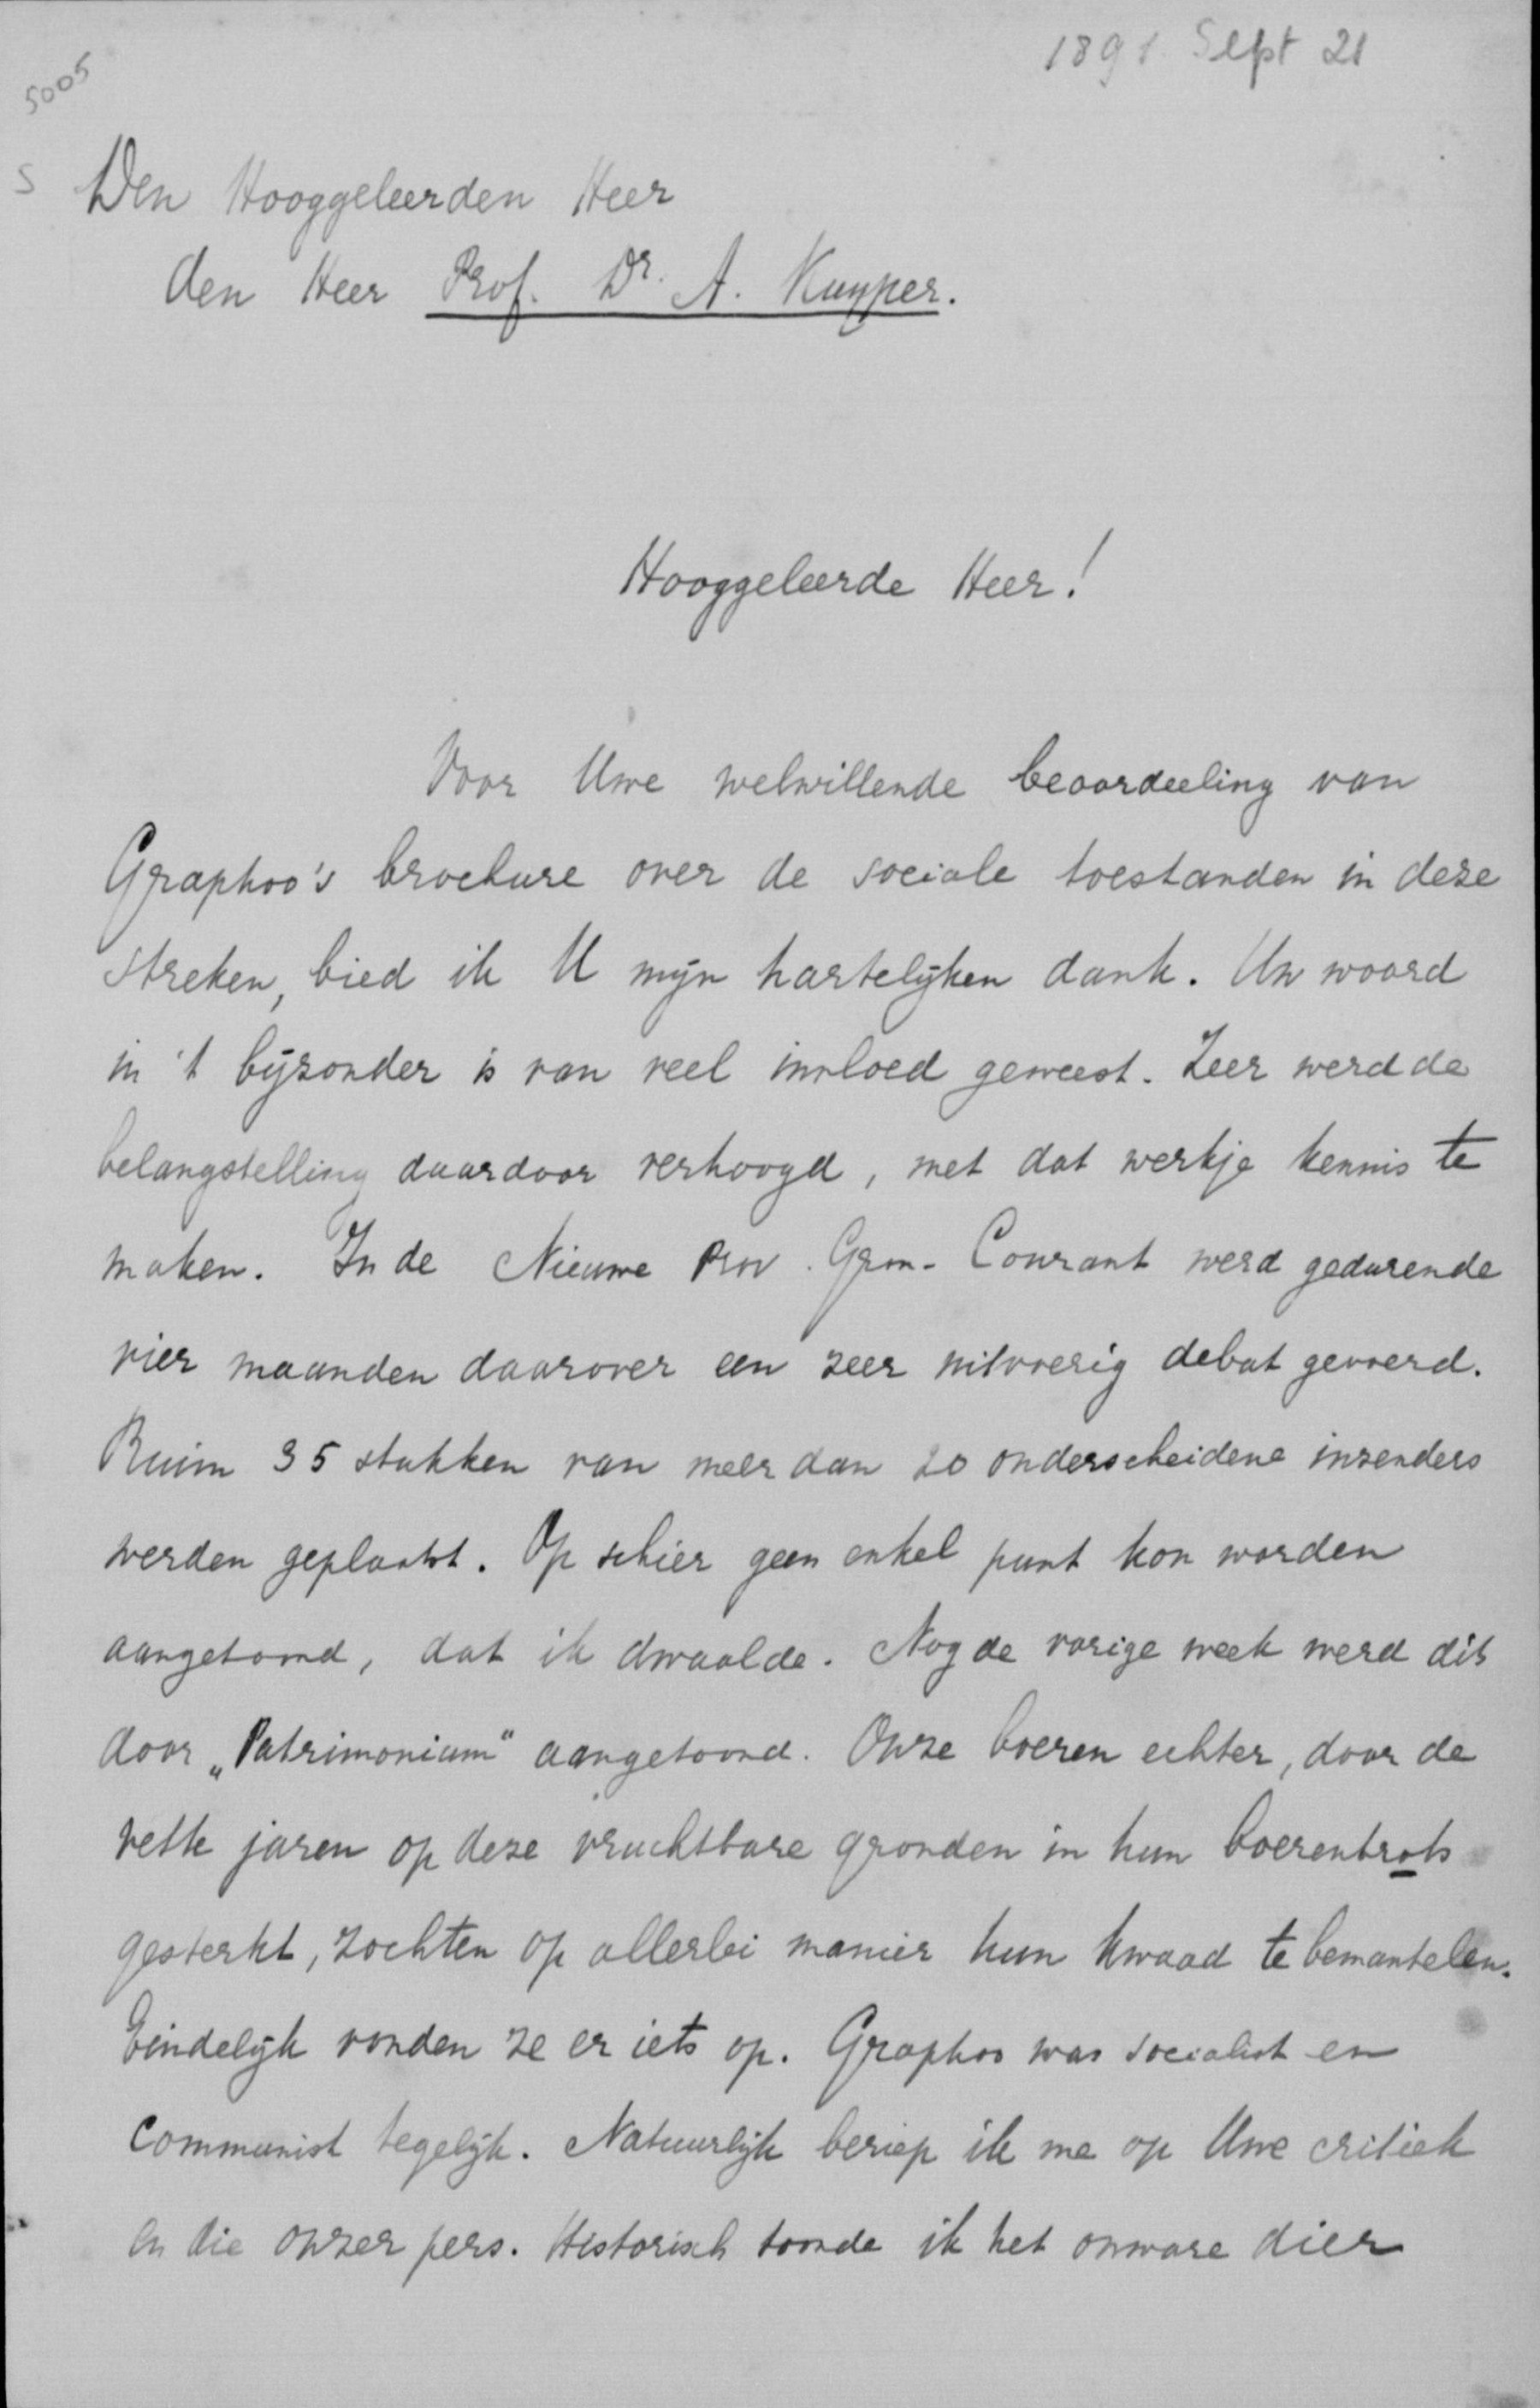 1891 Sept 21
5005
S
Den Hooggeleerden Heer
den Heer Prof. Dr. A. Kuyper.
Hooggeleerde Heer!
Voor Uwe welwillende beoordeeling van
Graphoo's brochure over de sociale toestanden in deze
streken, bied ik U mijn hartelijken dank. Uw woord
in 't bijzonder is van veel invloed geweest. Zeer werd de
belangstelling daardoor verhoogd, met dat werkje kennis te
maken. In de Nieuwe Prov. Gron. Courant werd gedurende
vier maanden daarover een zeer uitvoerig debat gevoerd.
Ruim 35 stukken van meer dan 20 onderscheidene inzenders
werden geplaatst. Op schier geen enkel punt kon worden
aangetoond, dat ik dwaalde. Nog de vorige week werd dit
door „Patrimonium" aangetoond. Onze boeren echter, door de
vette jaren op deze vruchtbare gronden in hun boerentrots
gesterkt, zochten op allerlei manier hun kwaad te bemantelen.
Eindelijk vonden ze er iets op. Graphoo was socialist en
communist tegelijk. Natuurlijk beriep ik me op Uwe critiek
en die onzer pers. Historisch toonde ik het onware dier